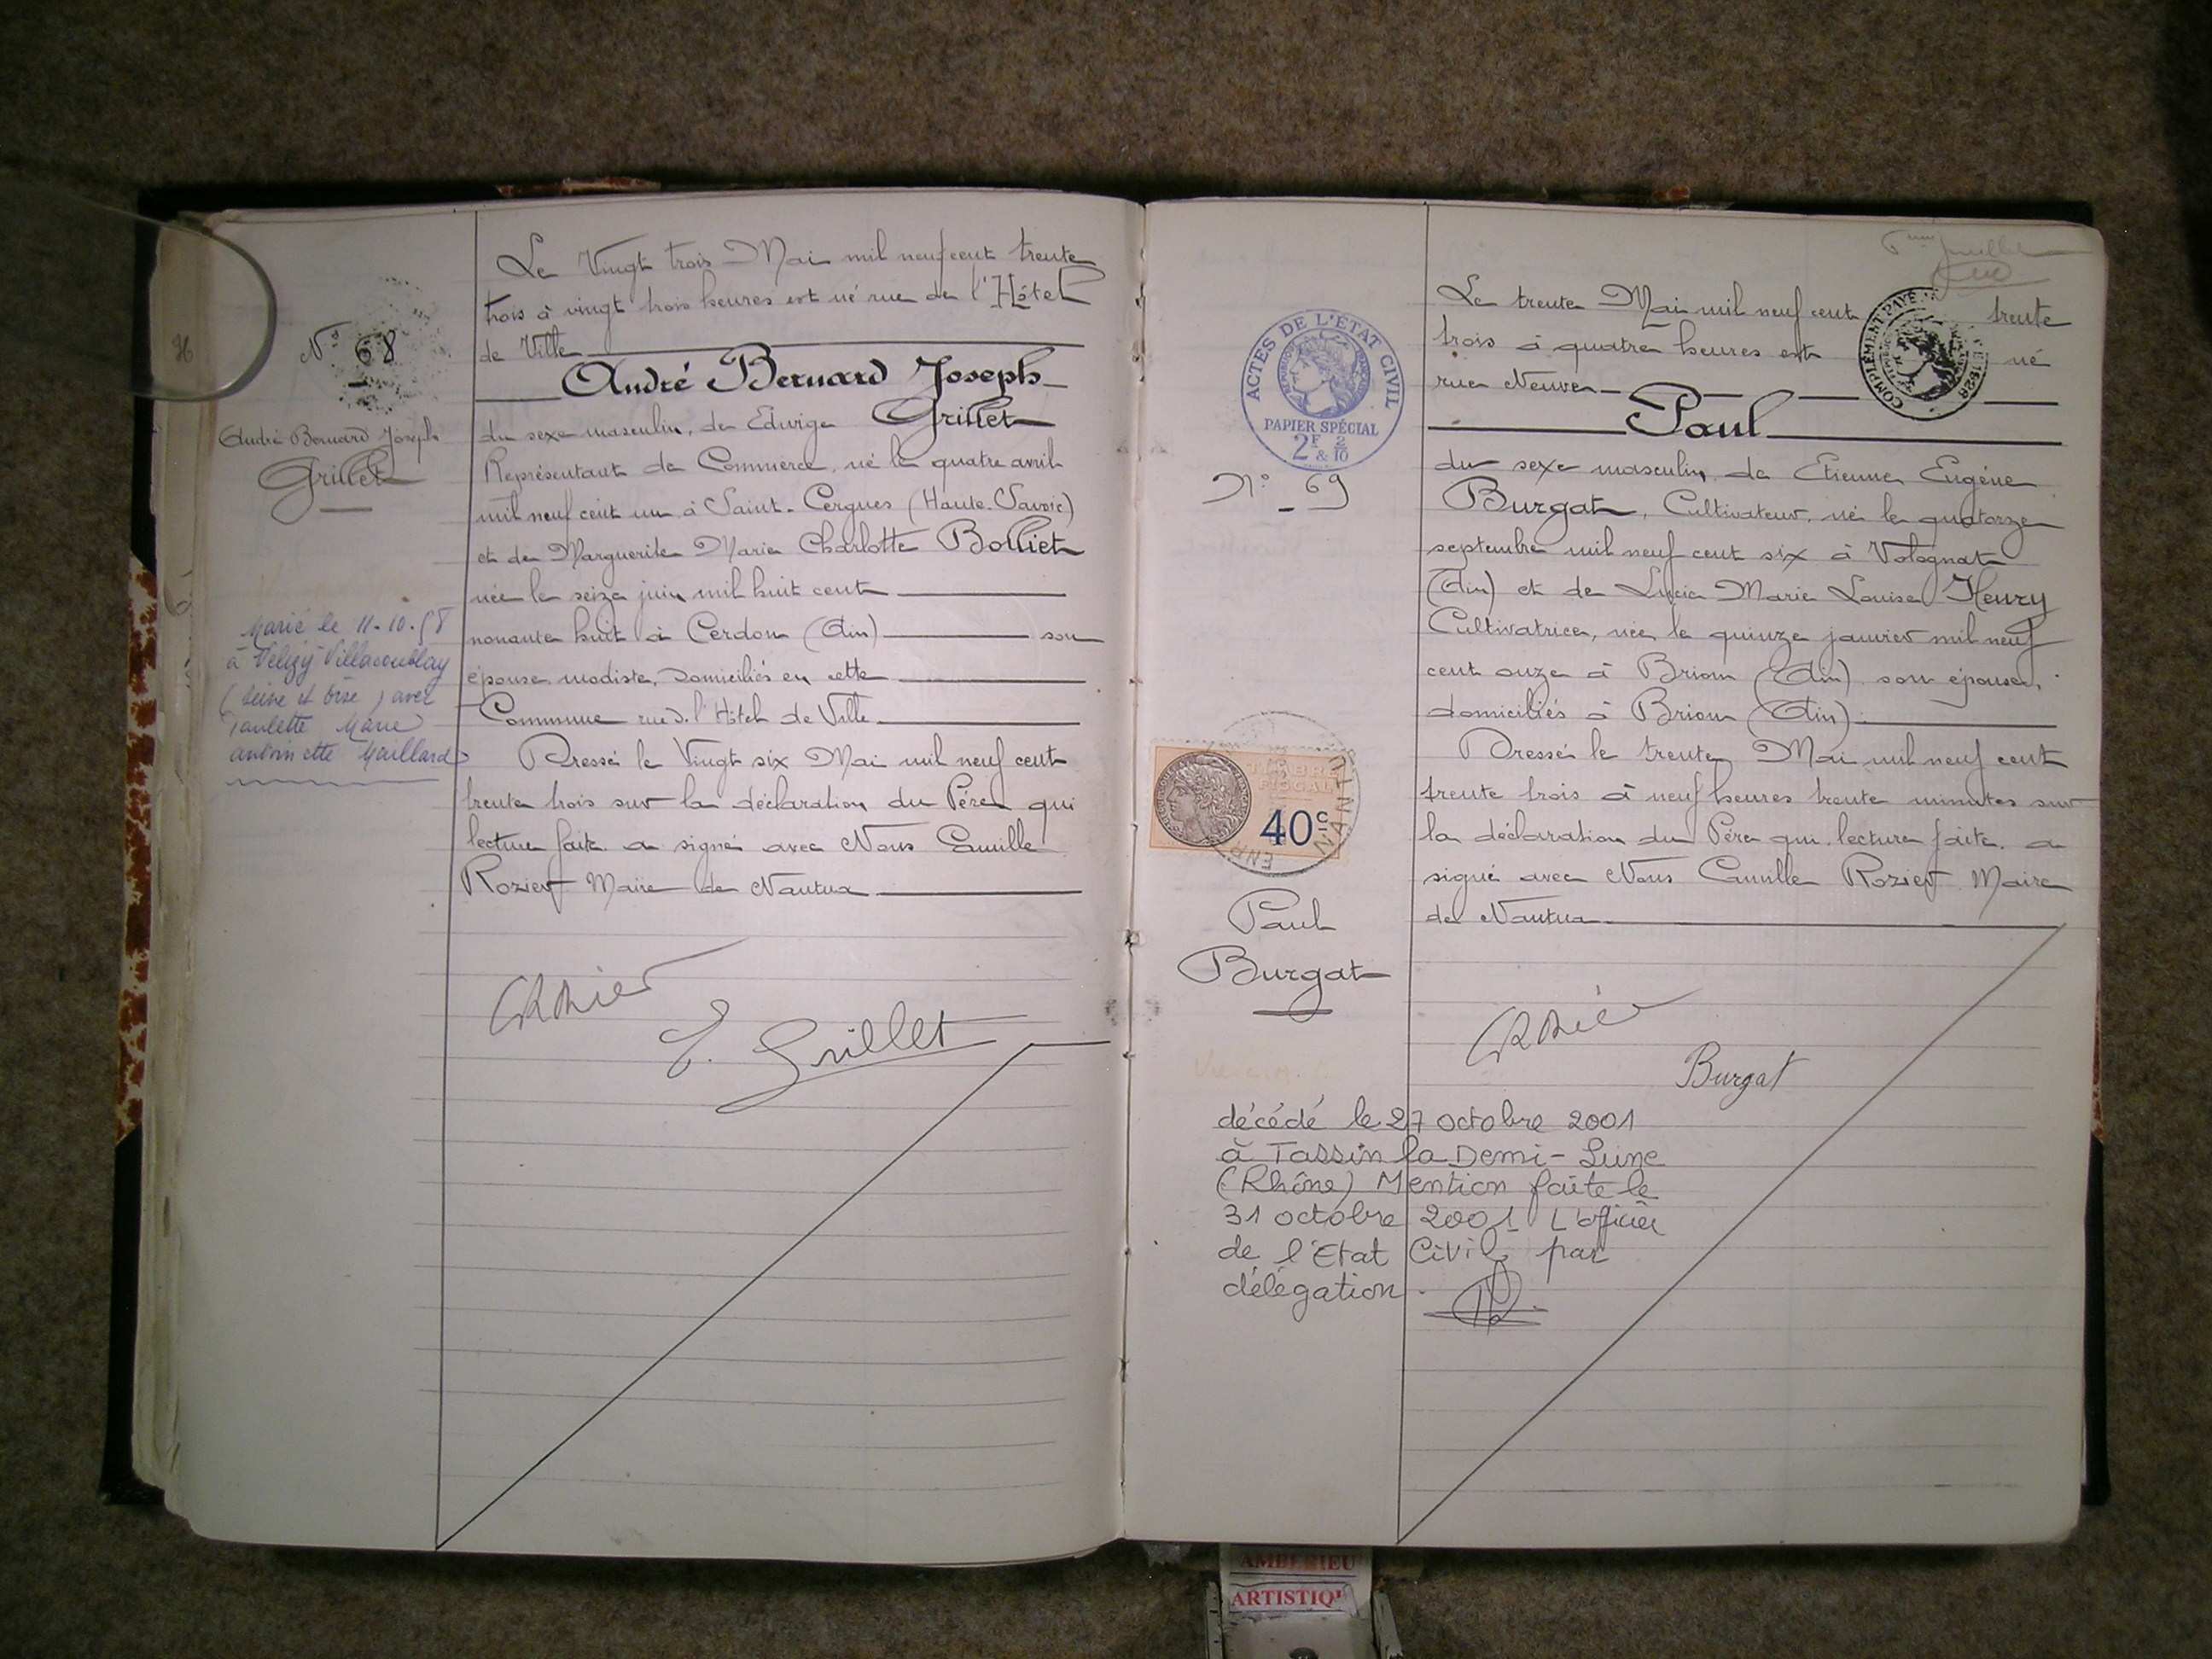 36
N° 68
André Bernard Joseph
Grillet
Marié le 11-10-58
à Vélizy Villacoublay
(Seine et Oise) avec
Paulette Marie
Antoinette Maillard
Le Vingt trois Mai mil neuf cent trente
trois à vingt trois heures est né rue de l'Hôtel
de Ville
André Bernard Joseph
du sexe masculin, de Edwige Grillet
Représentant de Commerce, né le quatre avril
mil neuf cent un à Saint-Cergues (Haute-Savoie)
et de Marguerite Marie Charlotte Bolliet
née le seize juin mil huit cent
nonante huit à Cerdon (Ain) son
épouse modiste, domiciliés en cette
Commune rue de l'Hôtel de Ville
Dressé le Vingt six Mai mil neuf cent
trente trois sur la déclaration du Père qui
lecture faite a signé avec Nous Camille
Rozier Maire de Nantua
CRozier
E. Grillet
ACTES DE L'ETAT CIVIL
PAPIER SPÉCIAL
2F & 2/10
N° 69
TIMBRE
FISCAL
40c
NANTUA
ENR
Paul
Burgat
COMPLÉMENT PAYÉ
1928
Le trente Mai mil neuf cent trente
trois à quatre heures est né
rue Neuve
Paul
du sexe masculin de Etienne Eugène
Burgat, Cultivateur, né le quatorze
septembre mil neuf cent six à Volognat
(Ain) et de Lucie Marie Louise Henry
Cultivatrice, née le quinze janvier mil neuf
cent onze à Brion (Ain) son épouse,
domiciliés à Brion (Ain)
Dressé le trente Mai mil neuf cent
trente trois à neuf heures trente minutes sur
la déclaration du Père qui, lecture faite, a
signé avec Nous Camille Rozier Maire
de Nantua
CRozier
Burgat
décédé le 27 octobre 2001
à Tassin la Demi-Lune
(Rhône) Mention faite le
31 octobre 2001 L'officier
de l'Etat Civil par
délégation.
AMBERIEU
ARTISTIQU